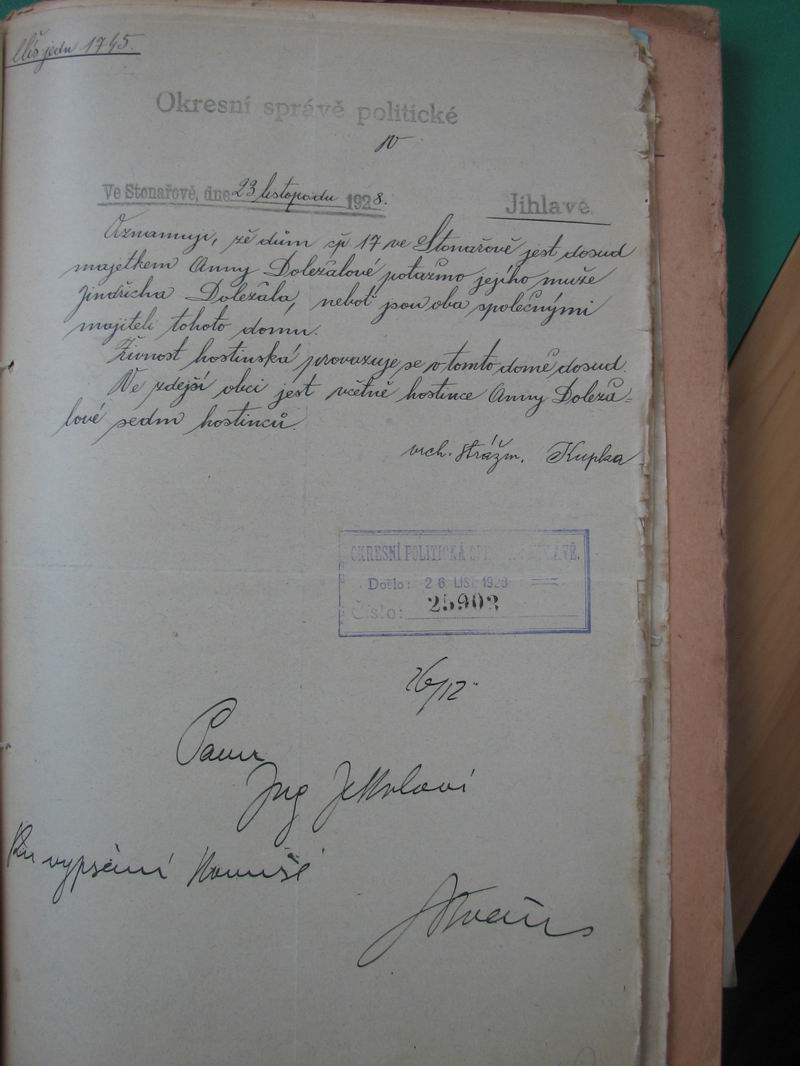 Čís. jedn 1745.
Okresní správě politické
v
Ve Stonařově, dne 23 listopadu 1928.
Jihlavě
Oznamuji, že dům čp. 17 ve Stonařově jest dosud
majetkem Anny Doležalové potažmo jejího muže
Jindřicha Doležala, neboť jsou oba společnými
majiteli tohoto domu.
Živnost hostinská provozuje se v tomto domě dosud.
Ve zdejší obci jest včetně hostince Anny Doleža-
lové sedm hostinců.
vrch. strážm. Kupka
OKRESNÍ POLITICKÁ
Došlo: 26 LIS. 1928
Číslo: 25902
26/12
Panu
Ing
vypsání komisé